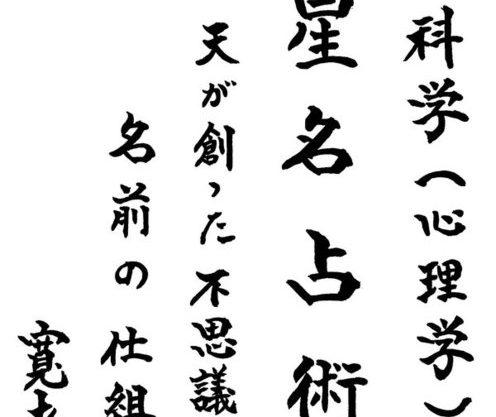 科学(心理学)
星名占術
天が創った不思議
名前の仕組
寛